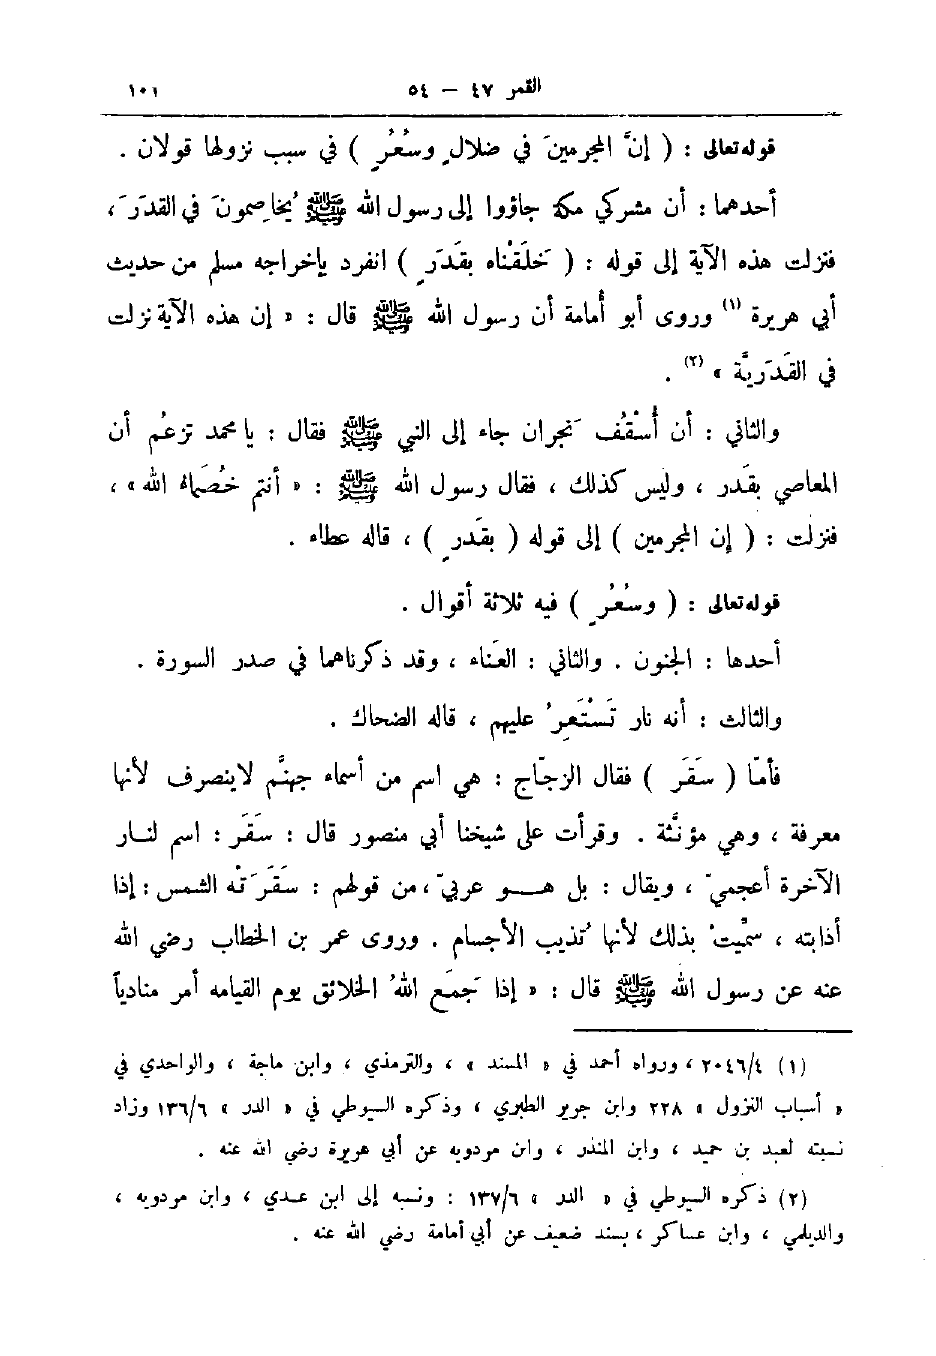 القمر ٤٧ — ٥٤ ١٠١
قوله تعالى : ( إنَّ المجرمينَ في ضلالٍ وسُعُرٍ ) في سبب نزولها قولان .
أحدهما : أن مشركي مكة جاؤوا إلى رسول الله ﷺ يُخاصِمونَ في القدَرَ ،
فنزلت هذه الآية إلى قوله : ( خَلَقْناه بقَدَرٍ ) انفرد بإخراجه مسلم من حديث
أبي هريرة (١) وروى أبو أُمامة أن رسول الله ﷺ قال : « إن هذه الآية نزلت
في القَدَريَّة » (٢) .
والثاني : أن أُسْقُف نَجران جاء إلى النبي ﷺ فقال : يا محمد تزعُم أن
المعاصي بقَدَر ، وليس كذلك ، فقال رسول الله ﷺ : « أنتم خُصَماءُ الله » ،
فنزلت : ( إن المجرمين ) إلى قوله ( بقَدَرٍ ) ، قاله عطاء .
قوله تعالى : ( وسُعُرٍ ) فيه ثلاثة أقوال .
أحدها : الجنون . والثاني : العَناء ، وقد ذكرناهما في صدر السورة .
والثالث : أنه نار تَسْتَعِرُ عليهم ، قاله الضحاك .
فأمّا ( سَقَرَ ) فقال الزجّاج : هي اسم من أسماء جهنَّم لاينصرف لأنها
معرفة ، وهي مؤنَّثة . وقرأت على شيخنا أبي منصور قال : سَقَرَ : اسم لنـار
الآخرة أعجميّ ، ويقال : بل هـو عربيّ ، من قولهم : سَقَرَتْه الشمس : إذا
أذابته ، سمِّيتْ بذلك لأنها تُذيب الأجسام . وروى عمر بن الخطاب رضي الله
عنه عن رسول الله ﷺ قال : « إذا جَمَع اللهُ الخلائق يوم القيامه أمر منادياً
(١) ٢٠٤٦/٤ ، ورواه أحمد في « المسند » ، والترمذي ، وابن ماجة ، والواحدي في
« أسباب النزول » ٢٢٨ وابن جرير الطبري ، وذكره السيوطي في « الدر » ١٣٦/٦ وزاد
نسبته لعبد بن حميد ، وابن المنذر ، وابن مردويه عن أبي هريرة رضي الله عنه .
(٢) ذكره السيوطي في « الدر » ١٣٧/٦ : ونسبه إلى ابن عدي ، وابن مردويه ،
والديلمي ، وابن عساكر ، بسند ضعيف عن أبي أمامة رضي الله عنه .